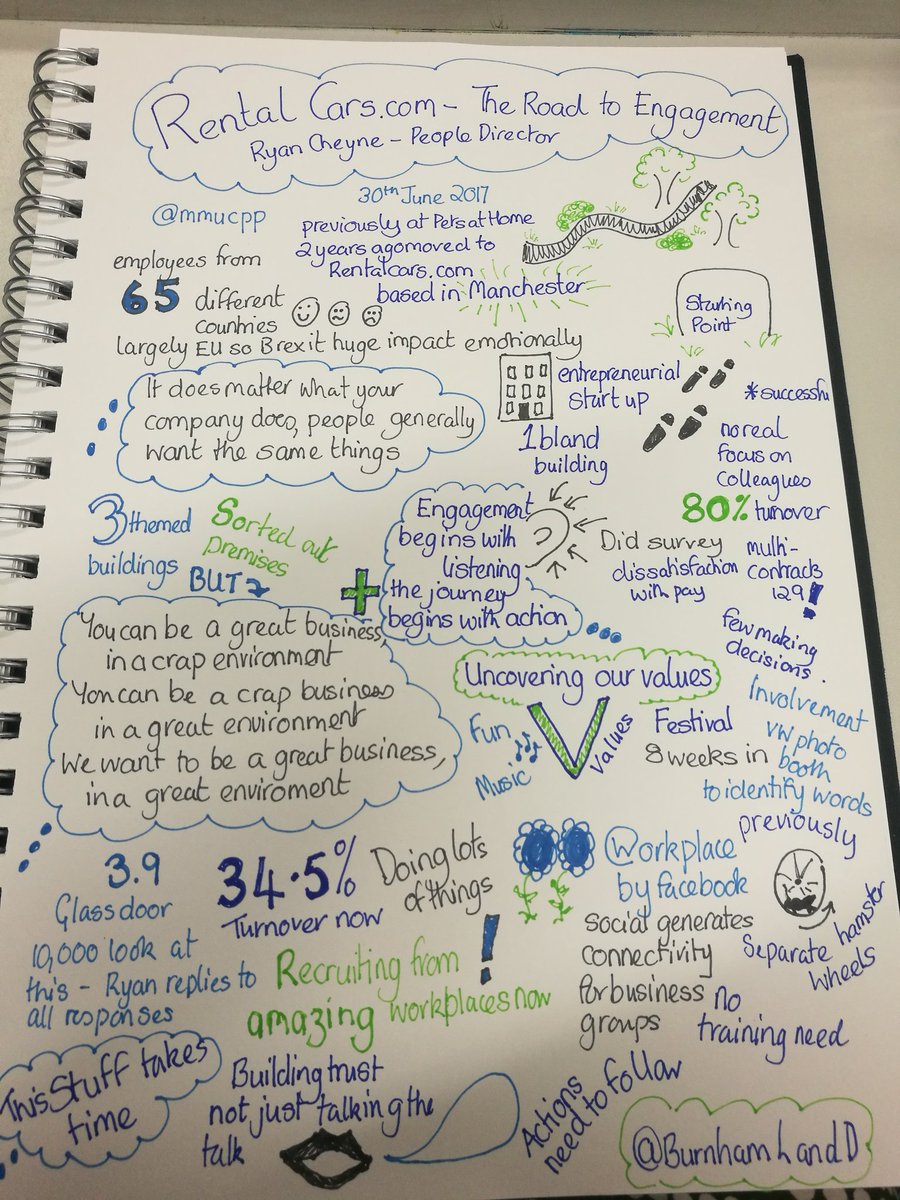 Rental Cars.com - The Road to Engagement
Ryan Cheyne - People Director
30th June 2017
@mmucpp
previously at Pets at Home
2 years ago moved to
Rentalcars.com
based in Manchester
employees from
65 different
countries
largely EU so Brexit huge impact emotionally
Starting
Point
It does matter what your
company does, people generally
want the same things
entrepreneurial
start up
1 bland
building
*successfu
no real
focus on
colleagues
80% turnover
3 themed
buildings
Sorted out
premises
BUT
Engagement
begins with
listening
the journey
begins with action
Did survey
dissatisfaction
with pay
multi-
contracts
129!
few making
decisions.
+
You can be a great business,
in a crap environment
You can be a crap business
in a great environment
We want to be a great business,
in a great enviroment
Uncovering our values
Fun
Music
V
Values
Festival
8 weeks in
Involvement
VW photo
booth
to identify words
3.9
Glassdoor
10,000 look at
this - Ryan replies to
all responses
34.5%
Turnover now
Doing lots
of things
!
Recruiting from
amazing workplaces now
@Workplace
by facebook
social generates
connectivity
for business
groups
previously
Separate hamster
wheels
no
training need
This Stuff takes
time
Building trust
not just talking the
talk
Actions
need to follow
@BurnhamLandD